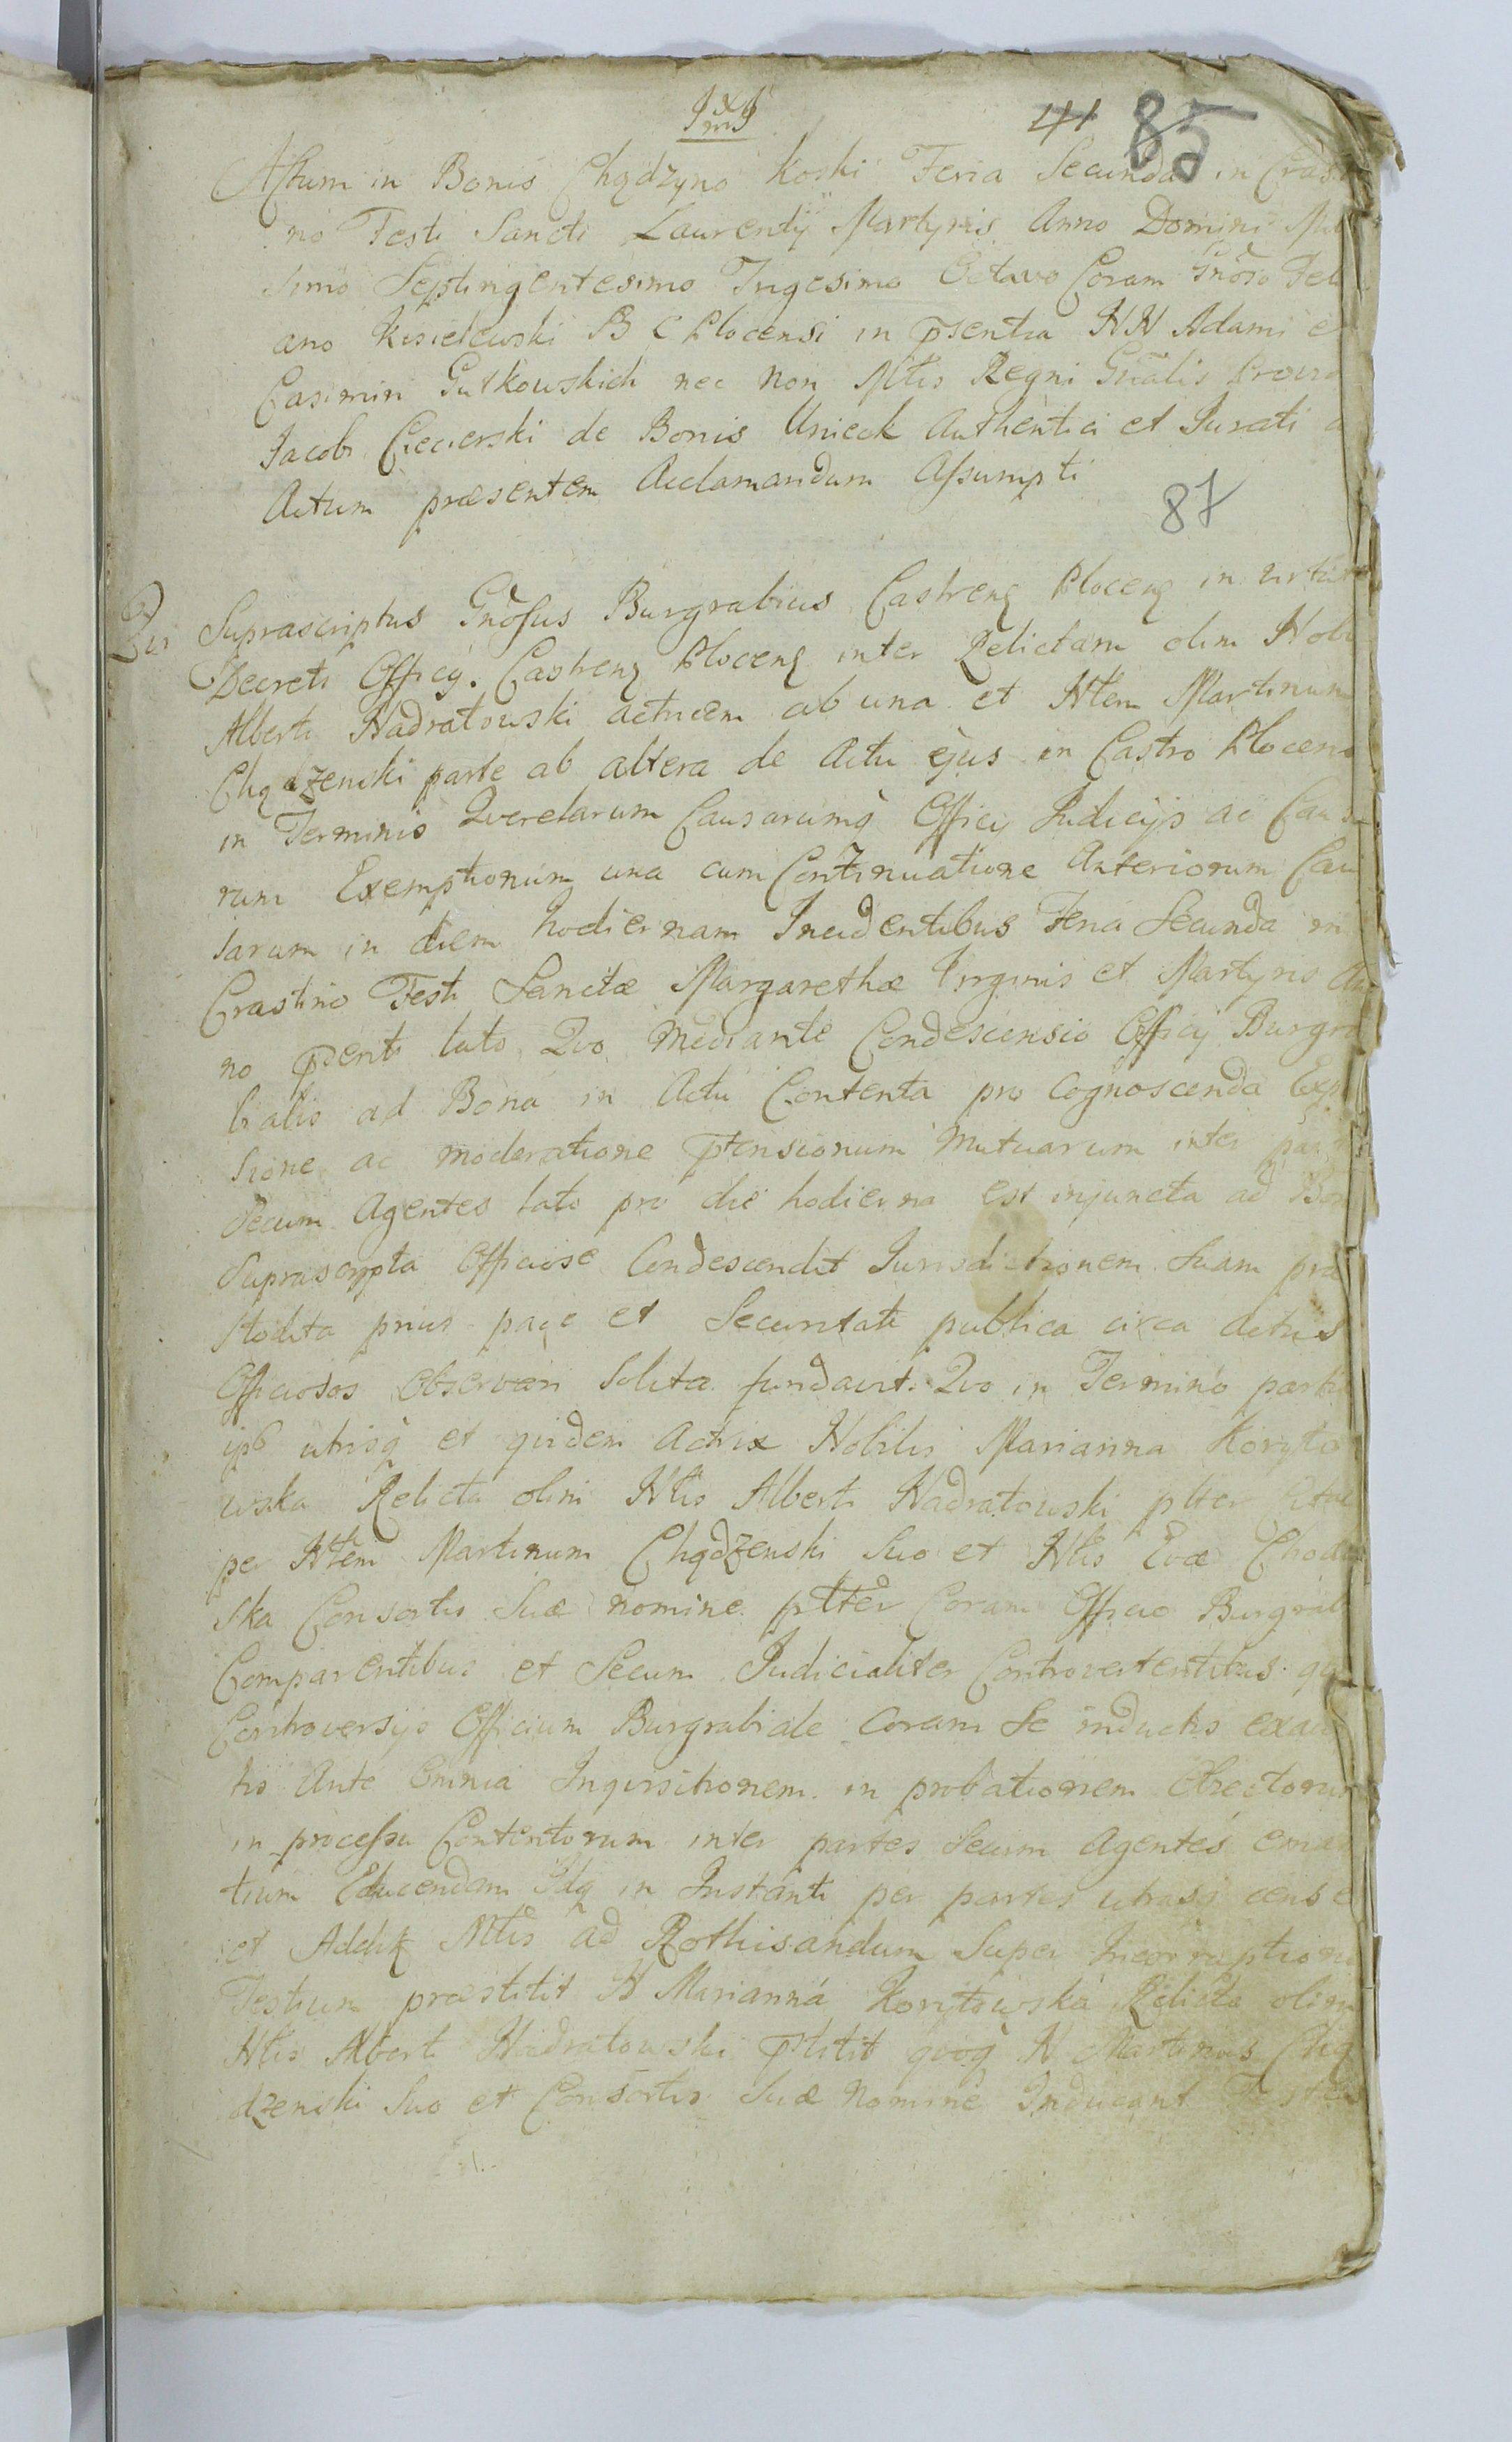 41 85
Actum in Bonis Chądzyno Koski Feria Secunda in Crasti
no Festi Sancti Laurentÿ Martyris Anno Domini Mil
simo Septingentesimo Trigesimo Octavo Coram Gnõso Feli
ano Kisielewski B C Plocensi in p̃sentia NN Adami et
Casimiri Gutkowskich nec non Mtis Regni Gnãlis Provid
Jacobi Ciecierski de Bonis Unieck Authentici et Jurati a
Actum præsentem Acclamandum Assumpti
87
Suprascriptus Gnõsus Burgrabius Castreng Plocensg in virtute
Decreti Officÿ Castreng Plocensg inter Relictam olim Nobi
Alberti Nadratowski actricem ab una et Nttem Martinum
Chądzenski parte ab altera de Actu ejus in Castro Plocens
in Terminis Querelarum Causarumq̀ Officÿ Judicÿs ac Causa
rum Exemptionum una cum Continuatione Anteriorum Cau
sarum in diem hodiernam Incidentibus Feria Secunda in
Crastino Festi Sanctæ Margarethæ Virginis et Martyris An
no p̃senti lato Quo Mediante Condescensio Officÿ Burgra
bialis ad Bona in Actu Contenta pro Cognoscenda Expul
sione ac moderatione p̃tensionum Mutuarum inter partes
Secum Agentes lato pro die hodierna est injuncta ad Bona
Suprascripta Officiose Condescendit Jurisdictionem Suam præ
stodita prius pace et Securitate publica circa Actus
Officiosos Observari Solita fundavit. Quo in Termino parti
ipb utrisq̀ et quidem Actrix Nobilis Marianna Koryto
wska Relicta olim Nttis Alberti Nadratowski ptter Citae
per Nttem Martinum Chądzenski Suo et Nttis Evæ Chodu
ska Consortis Suæ nomine ptter Coram Officio Burgrab
Comparentibus et Secum Judicialiter Controvertentibus qu
Controversÿs Officium Burgrabiale Coram Se inductis exaudi
tis Ante Omnia Inquisitionem in probationem Obiectorum
in processu Contentorum inter partes Secum Agentes eman
tium Educendam Idq̀ in Instanti per partes utrasq̀ cense
et Addik Mtis ad Rothisandum Super Incorruptione
Testium præstitit N Marianna Korytowska Relicta olim
Nttis Alberti Nadratowski p̃stitit quoq̀ N Martinus Chą
dzenski Suo et Consortis Suæ Nomine Inducant Testes